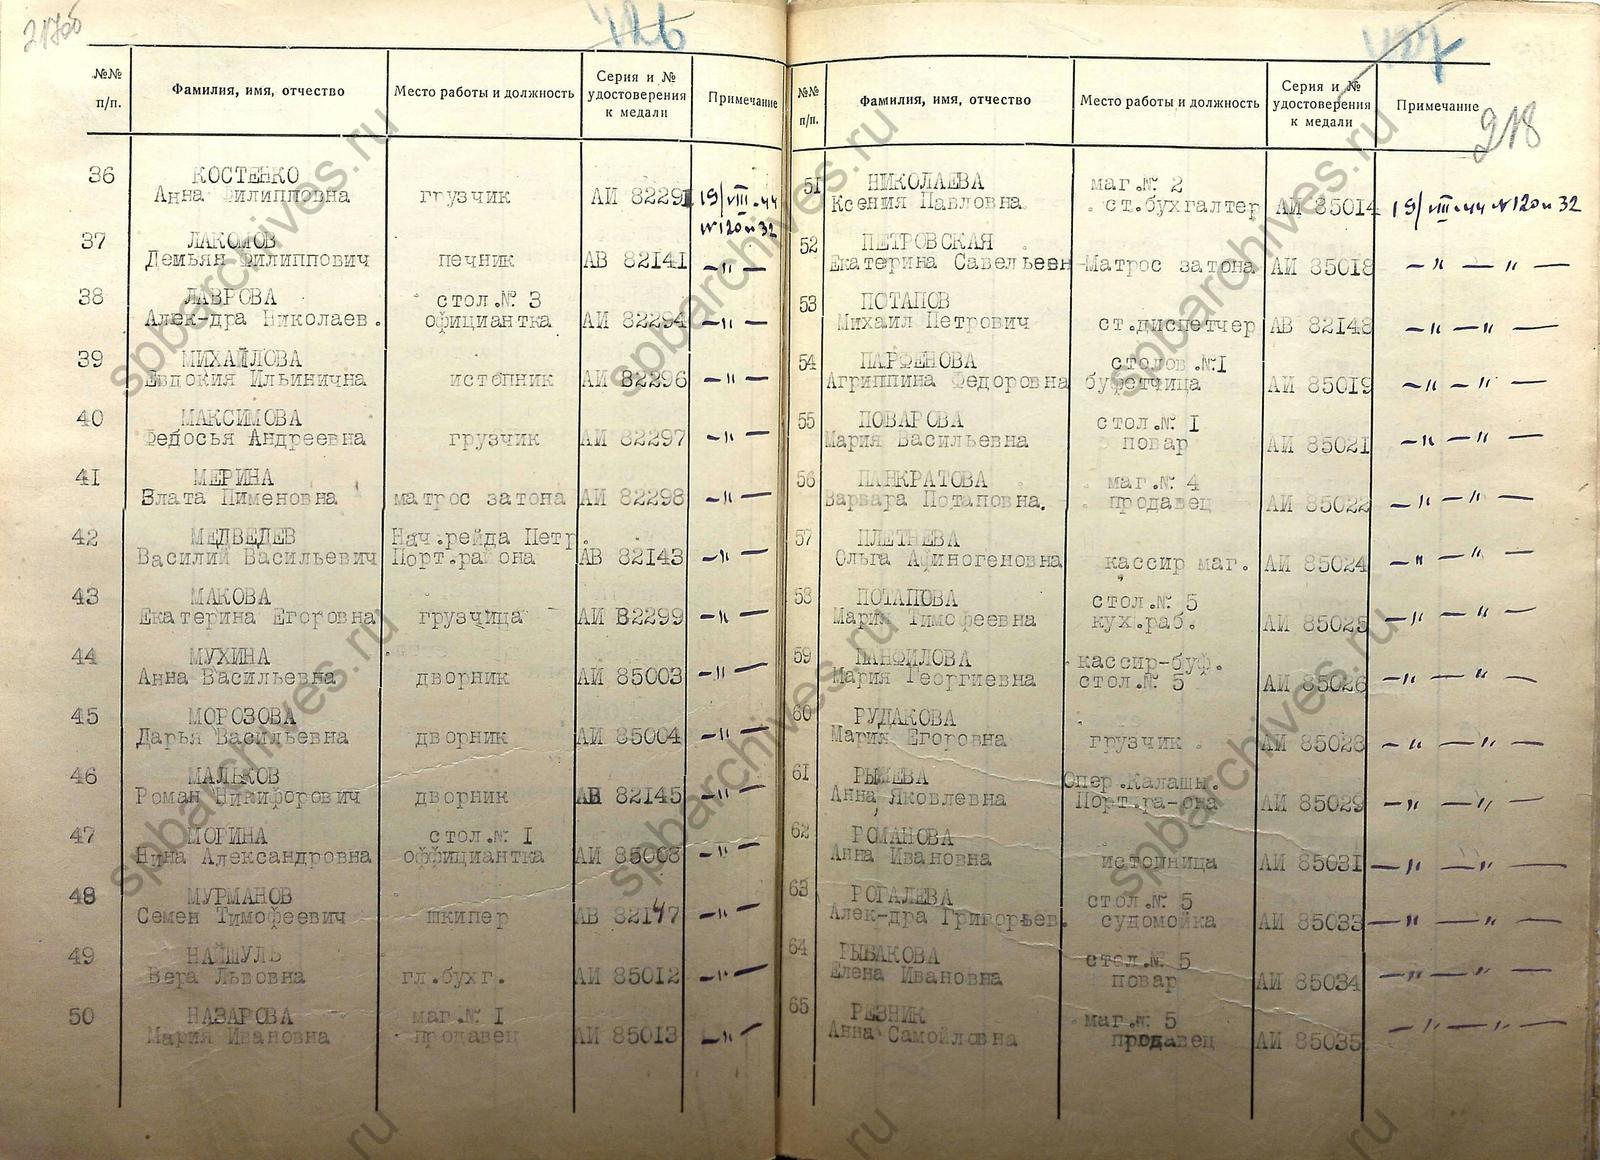 217об
126
№№
п/п.
Фамилия, имя, отчество
Место работы и должность
Серия и №
удостоверения
к медали
Примечание
36 КОСТЕНКО
Анна Филипповна грузчик АИ 82291 19/VIII-44
№120 и 32
37 ЛАКОМОВ
Демьян Филиппович печник АВ 82141 -"-
38 ЛАВРОВА стол.№ 3
Алек-дра Николаев. официантка АИ 82294 -"-
39 МИХАЙЛОВА
Евдокия Ильинична истопник АИ 82296 -"-
40 МАКСИМОВА
Федосья Андреевна грузчик АИ 82297 -"-
41 МЕРИНА
Злата Пименовна матрос затона АИ 82298 -"-
42 МЕДВЕДЕВ Нач.рейда Петр.
Василий Васильевич Порт.района АВ 82143 -"-
43 МАКОВА
Екатерина Егоровна грузчица АИ 82299 -"-
44 МУХИНА
Анна Васильевна дворник АИ 85003 -"-
45 МОРОЗОВА
Дарья Васильевна дворник АИ 85004 -"-
46 МАЛЬКОВ
Роман Никифорович дворник АВ 82145 -"-
47 МОРИНА стол.№ 1
Нина Александровна оффициантка АИ 85008 -"-
48 МУРМАНОВ
Семен Тимофеевич шкипер АВ 82147 -"-
49 НАЙШУЛЬ
Вера Львовна гл.бухг. АИ 85012 -"-
50 НАЗАРОВА маг.№ 1
Мария Ивановна продавец АИ 85013 -"-
127
218
№№
п/п.
Фамилия, имя, отчество
Место работы и должность
Серия и №
удостоверения
к медали
Примечание
51 НИКОЛАЕВА маг.№ 2
Ксения Павловна ст.бухгалтер АИ 85014 19/VIII-44 №120 и 32
52 ПЕТРОВСКАЯ
Екатерина Савельевн- Матрос затона АИ 85018 -"-"-
53 ПОТАПОВ
Михаил Петрович ст.диспетчер АВ 82148 -"-"-
54 ПАРФЕНОВА столов.№1
Агриппина Федоровна буфетчица АИ 85019 -"-"-
55 ПОВАРОВА стол.№ 1
Мария Васильевна повар АИ 85021 -"-"-
56 ПАНКРАТОВА маг.№ 4
Варвара Потаповна. продавец АИ 85022 -"-"-
57 ПЛЕТНЕВА
Ольга Афиногеновна кассир маг. АИ 85024 -"-"-
58 ПОТАПОВА стол.№ 5
Мария Тимофеевна кух.раб. АИ 85025 -"-"-
59 ПАНФИЛОВА кассир-буф.
Мария Георгиевна стол.№ 5 АИ 85026 -"-"-
60 РУДАКОВА
Мария Егоровна грузчик АИ 85028 -"-"-
61 РЫШЕВА Опер.Калашн.
Анна Яковлевна Порт.ра-она АИ 85029 -"-"-
62 РОМАНОВА
Анна Ивановна истопница АИ 85031 -"-"-
63 РОГАЛЕВА стол.№ 5
Алек-дра Григорьев. судомойка АИ 85033 -"-"-
64 РЫБАКОВА стол.№ 5
Елена Ивановна повар АИ 85034 -"-"-
65 РЕЗНИК маг.№ 5
Анна Самойловна продавец АИ 85035 -"-"-
spbarchives.ru
spbarchives.ru
spbarchives.ru
spbarchives.ru
spbarchives.ru
spbarchives.ru
ru
ru
ru